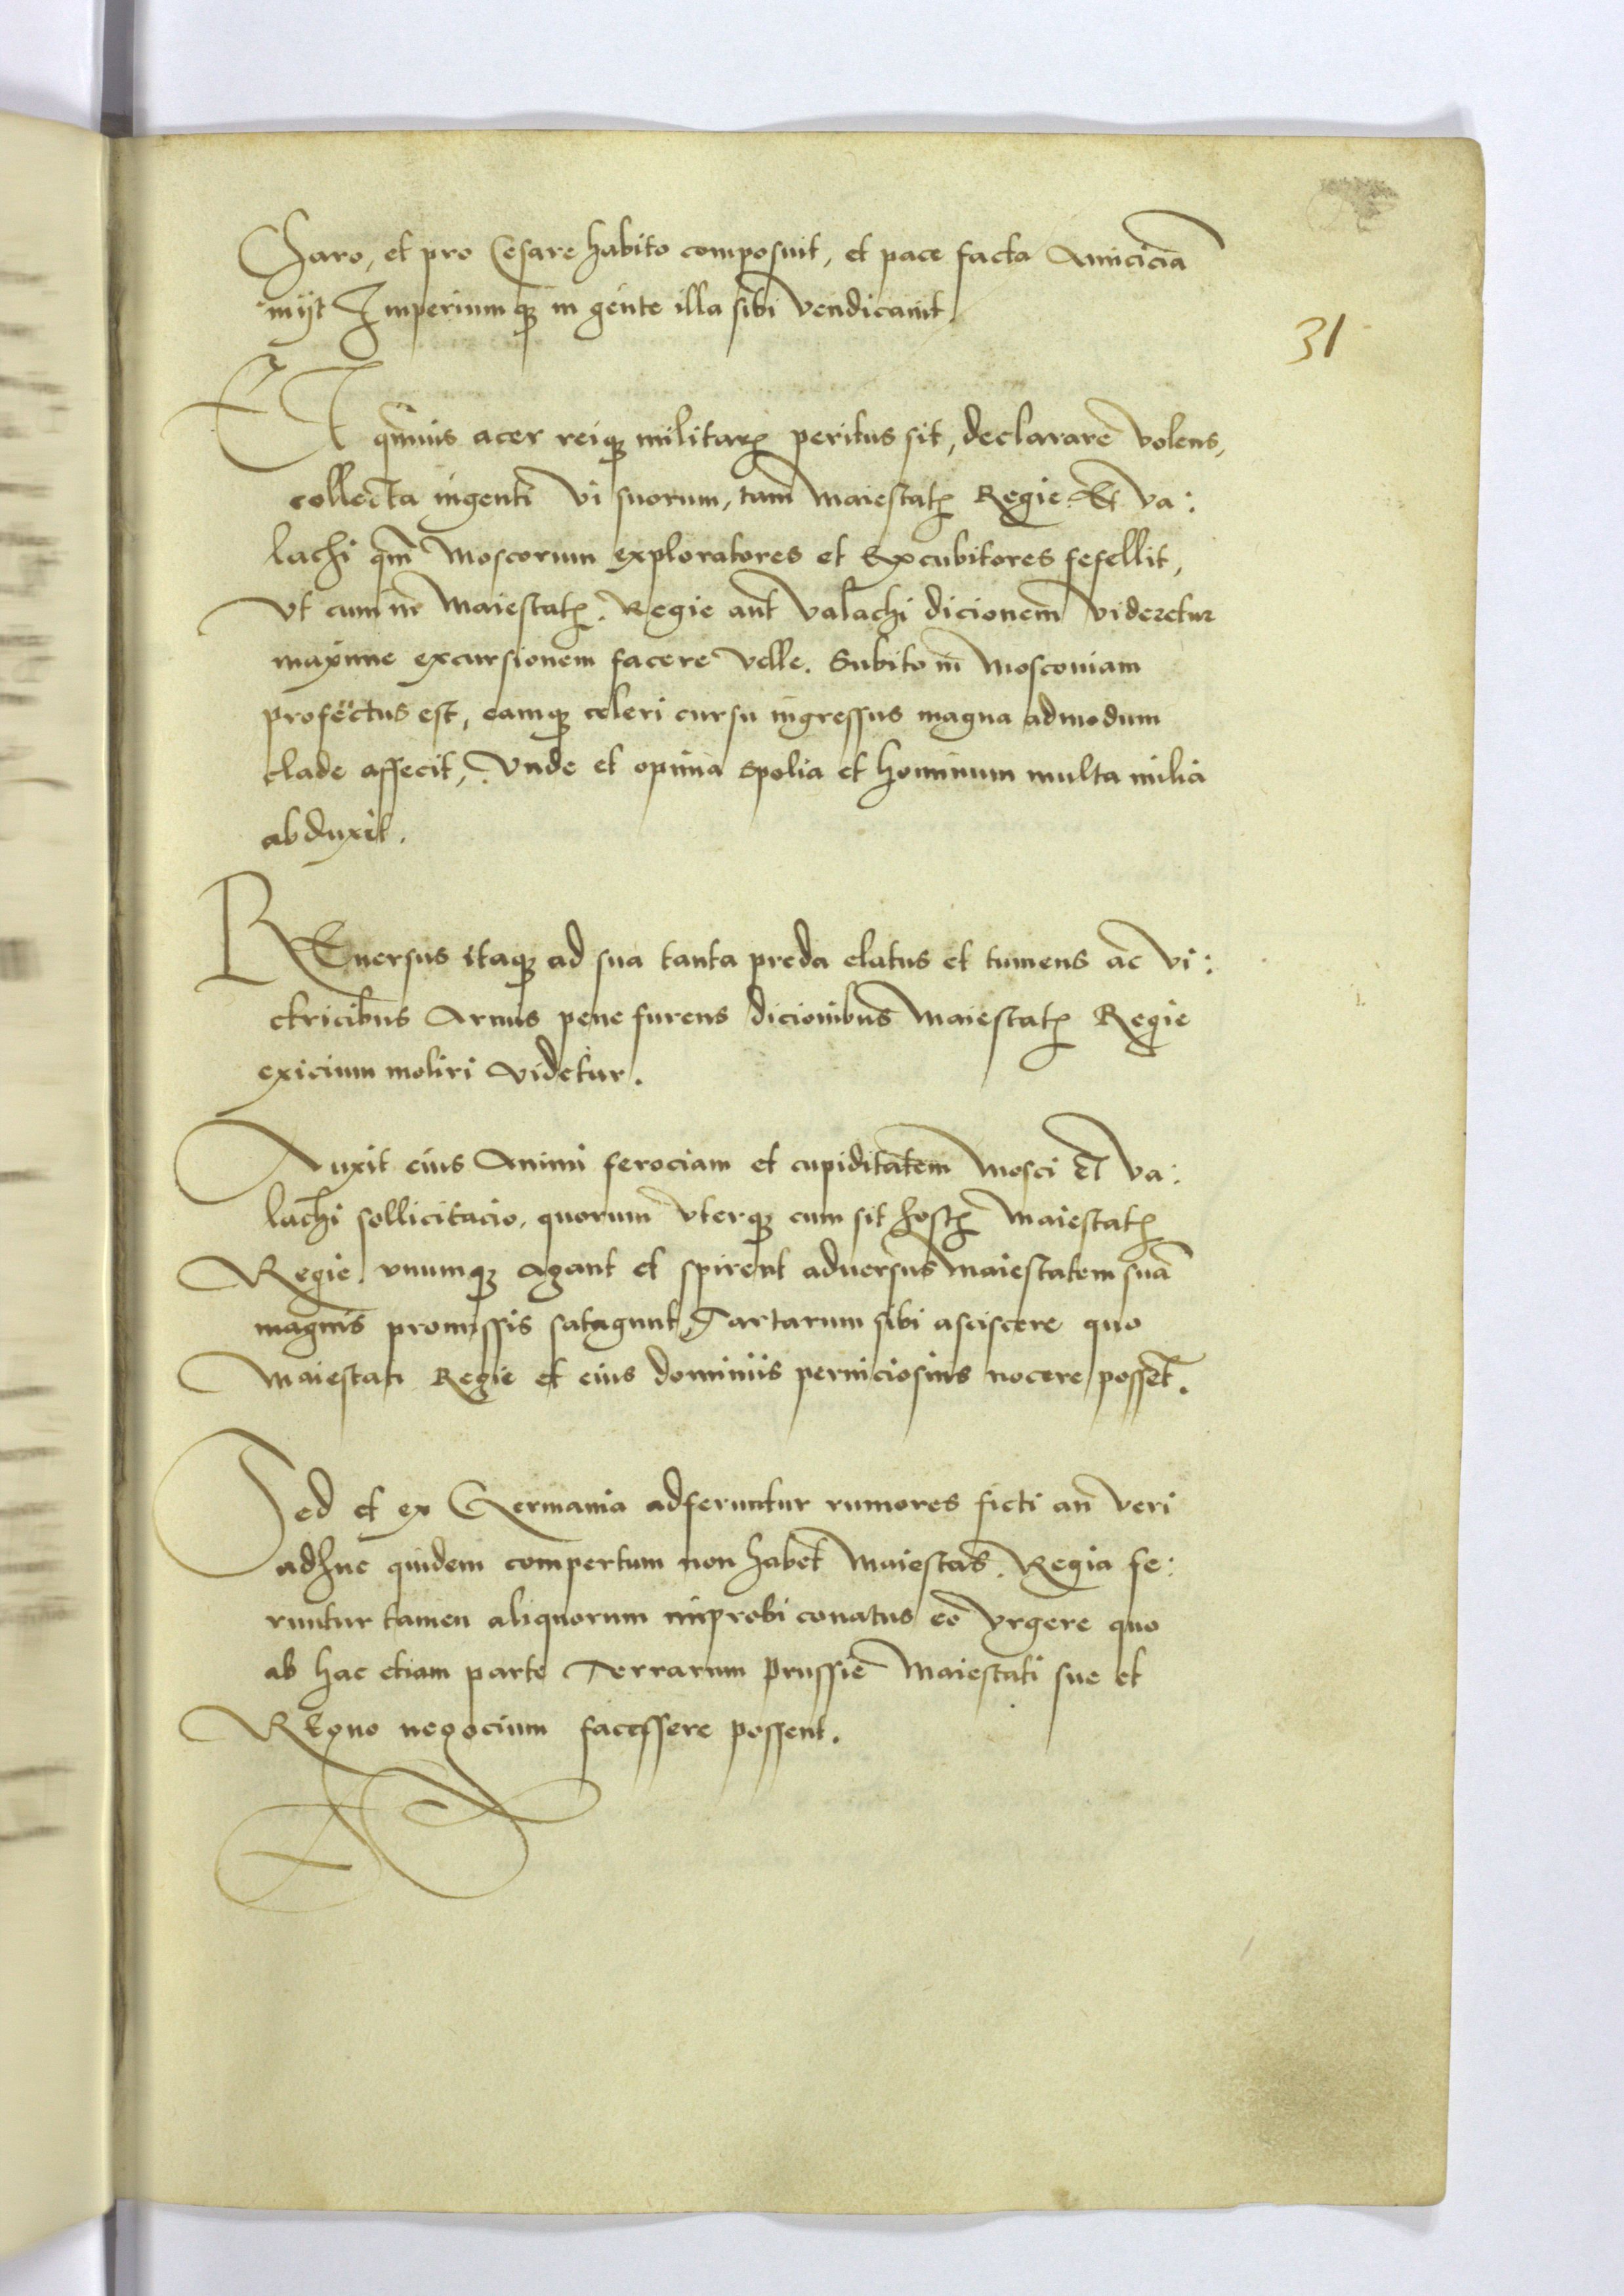 Charo, et pro Cesare habito composuit, et pace facta Amiciciã
inijt Imperiumqʒ in gente illa sibi vendicauit.
31
ET q̃nuis acer reiqʒ militarꝭ peritus sit, declarare volens,
collecta ingenti vi suorum, tam Maiestatꝭ Regie. Et va:
lachi q̃m Moscorum exploratores et Excubitores fefellit,
Vt cum in Maiestatꝭ. Regie aut Valachi dicionem videretur
maxime excursionem facere velle. Subito in Moscouiam
profectus est, eamqʒ celeri cursu ingressus magna admodum
clade affecit, Vnde et opima spolia et hominum multa milia
abduxit.
REuersus itaqʒ ad sua tanta preda elatus et tumens ac vi:
ctricibus Armis pene furens dicionibus Maiestatꝭ Regie
exicium moliri videtur.
Auxit eius Animi ferociam et cupiditatem Mosci Et va:
lachi sollicitacio, quorum vterqʒ cum sit hostꝭ Maiestatꝭ
Regie. vnumqʒ agant et spirent aduersus Maiestatem suã
magnis promissis satagunt, Tartarum sibi asciscere quo
Maiestati Regie et eius dominiis perniciosius nocere possẽt.
Sed et ex Germania adferuntur rumores ficti an veri
adhuc quidem compertum non habet Maiestas. Regia fe:
runtur tamen aliquorum improbi conatus eo vrgere quo
ab hac etiam parte Terrarum Prussie Maiestati sue et
REgno negocium facessere possent.